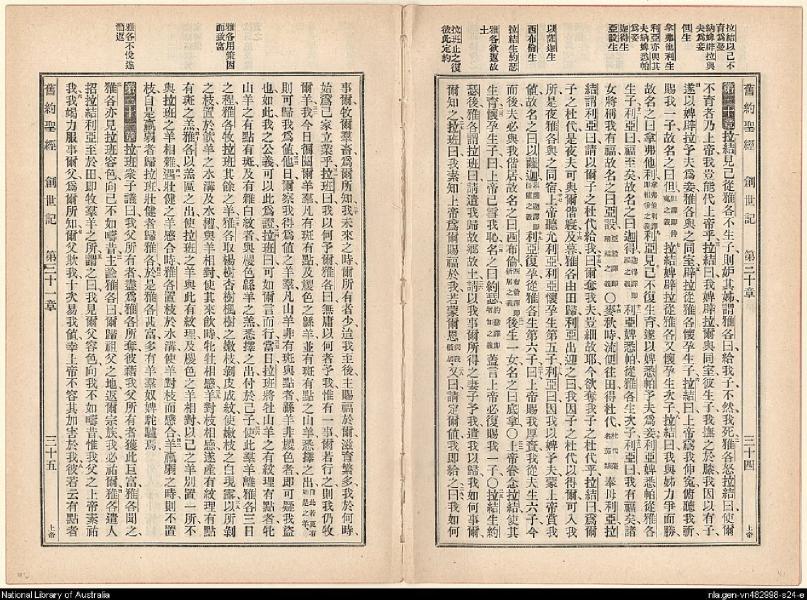 拉結以己不
育為憂
納婢辟拉與
夫為妾
但生
拿弗他利生
利亞亦與其
夫婢悉帕
為妾
迦得生
亞設生
以薩迦生
西布倫生
拉結生約瑟
雅各欲返故
土
拉班止之復
與彼定約
第三十章拉結見己從雅各不生子則妒其姊謂雅各曰給我子不然我死雅各怒拉結曰使爾
不育者乃上帝我豈能代上帝乎拉結曰我婢辟拉爾與同室彼生子我撫之於膝我因以有子
遂以婢辟拉予夫為妾雅各與之同室辟拉從雅各懷孕生子拉結曰上帝為我伸冤俯聽我祈
賜我一子故名之曰但 拉結婢辟拉從雅各又懷孕生次子拉結曰我與姊力爭而勝
故名之曰拿弗他利 利亞見己不復生育遂以婢悉帕予夫為妾利亞婢悉帕從雅各
生子利亞曰福至矣故名之曰迦得 利亞婢悉帕從雅各生次子利亞曰我有福矣諸
女將稱我有福故名之曰亞設 ○麥秋時流便往田得杜代 奉母利亞拉
結謂利亞曰請以爾子之杜代給我曰爾奪我夫豈細故耶今欲奪我子之杜代乎拉結曰為爾
子之杜代是夜夫可與爾偕寢及暮雅各由田歸利亞出迎之曰我因子之杜代以得爾可入我
所是夜雅各與之同宿上帝聽允利亞利亞懷孕生第五子利亞曰因我以婢予夫蒙上帝賞我
值故名之曰以薩迦 利亞復孕從雅各生第六子曰上帝賜我厚賚我從夫生六子今
而後夫必與我偕居故名之曰西布倫 後生一女名之曰底拿○上帝眷念拉結使其
生育懷孕生子曰上帝已雪我恥名之曰約瑟 蓋言上帝必復賜我一子○拉結生約
瑟後雅各謂拉班曰請遣我歸故鄉故土請以我事爾所得之妻子予我遣我以歸我如何事
爾知之拉班曰我素知上帝為爾賜福於我若蒙爾恩 又曰請定爾值我即給之曰我如何
舊約聖經 創世記 第三十章 三十四 上帝
雅各用策因
而致富
雅各不悅遂
思返
事爾牧爾羣畜為爾所知我未來之時爾所有者少迨我至後主賜福於爾滋育繁多我於何時
始為己家立業乎拉班曰我以何予爾雅各曰無庸以何者予我惟有一事爾若行之則我仍牧
爾羊我今日徧閱爾羣羊凡有斑有點及黑色之緜羊並有斑有點之山羊悉擇出之
則可歸我為值他日爾察我得為值之羊羣凡山羊非有斑與點者緜羊非黑色者即可疑我盜
也如此我之公義可以為證拉班曰可如爾言而行當日拉班將牡山羊之有紋理有點者牝
山羊之有點有斑及有雜白紋者與黑色緜羊之羔悉擇之出付於己子使此羣羊離雅各三日
之程雅各牧拉班其餘之羊雅各取楊樹杏樹楓樹之嫩枝剝皮成紋使嫩枝之白現露以所剝
之枝置於飲羊之水溝及水槽與羊相對使其來飲時牝牡相感羊對枝相感遂產有紋理有點
有斑之羔雅各以羔區之出使拉班之羊與此有紋理及黑色之羊相對以己之羊別置一所不
與拉班之羊相雜遇壯健之羊感合時雅各置枝於水溝使羊對枝而感合羊羸弱之時則不置
枝自是羸弱者歸拉班壯健者歸雅各於是雅各甚富多有羊羣奴婢駝驢焉
第三十一章拉班眾子議曰我父所有者盡為雅各所奪彼藉我父所有者獲此巨富雅各聞之
雅各亦見拉班容色向己不如疇昔主諭雅各曰爾歸祖父之地返爾宗族我必祐爾雅各遣人
招拉結利亞至於田即牧羣羊之所謂之曰我見爾父容色向我不如疇昔惟我父之上帝素祐
我我竭力服事爾父為爾所知爾父欺我十次易我值幸上帝不容其加害於我彼若云有點者
舊約聖經 創世記 第三十一章 三十五 上帝
National Library of Australia
nla.gen-vn482998-s24-e